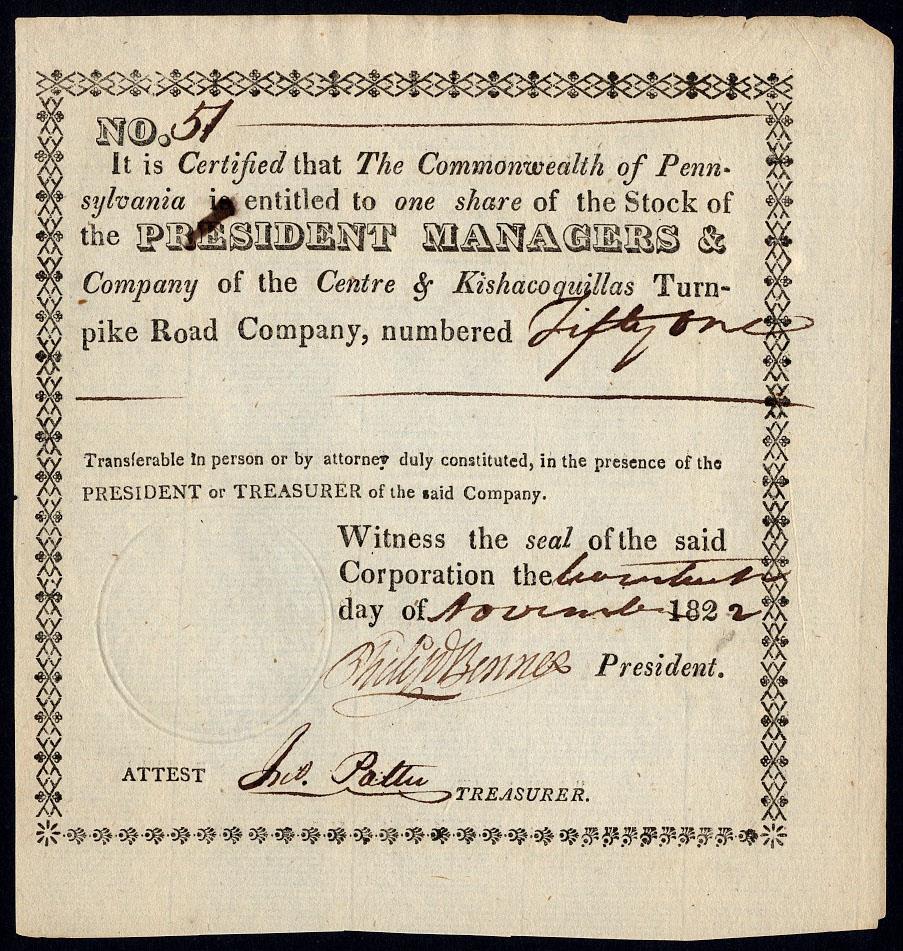 NO. 51
It is Certified that The Commonwealth of Penn-
sylvania is entitled to one share of the Stock of
the PRESIDENT MANAGERS &
Company of the Centre & Kishacoquillas Turn-
pike Road Company, numbered Fifty one
Transferable In person or by attorney duly constituted, in the presence of the
PRESIDENT or TREASURER of the said Company.
Witness the seal of the said
Corporation the
day of November 1822
Philip Benner President.
ATTEST Jno. Potter TREASURER.